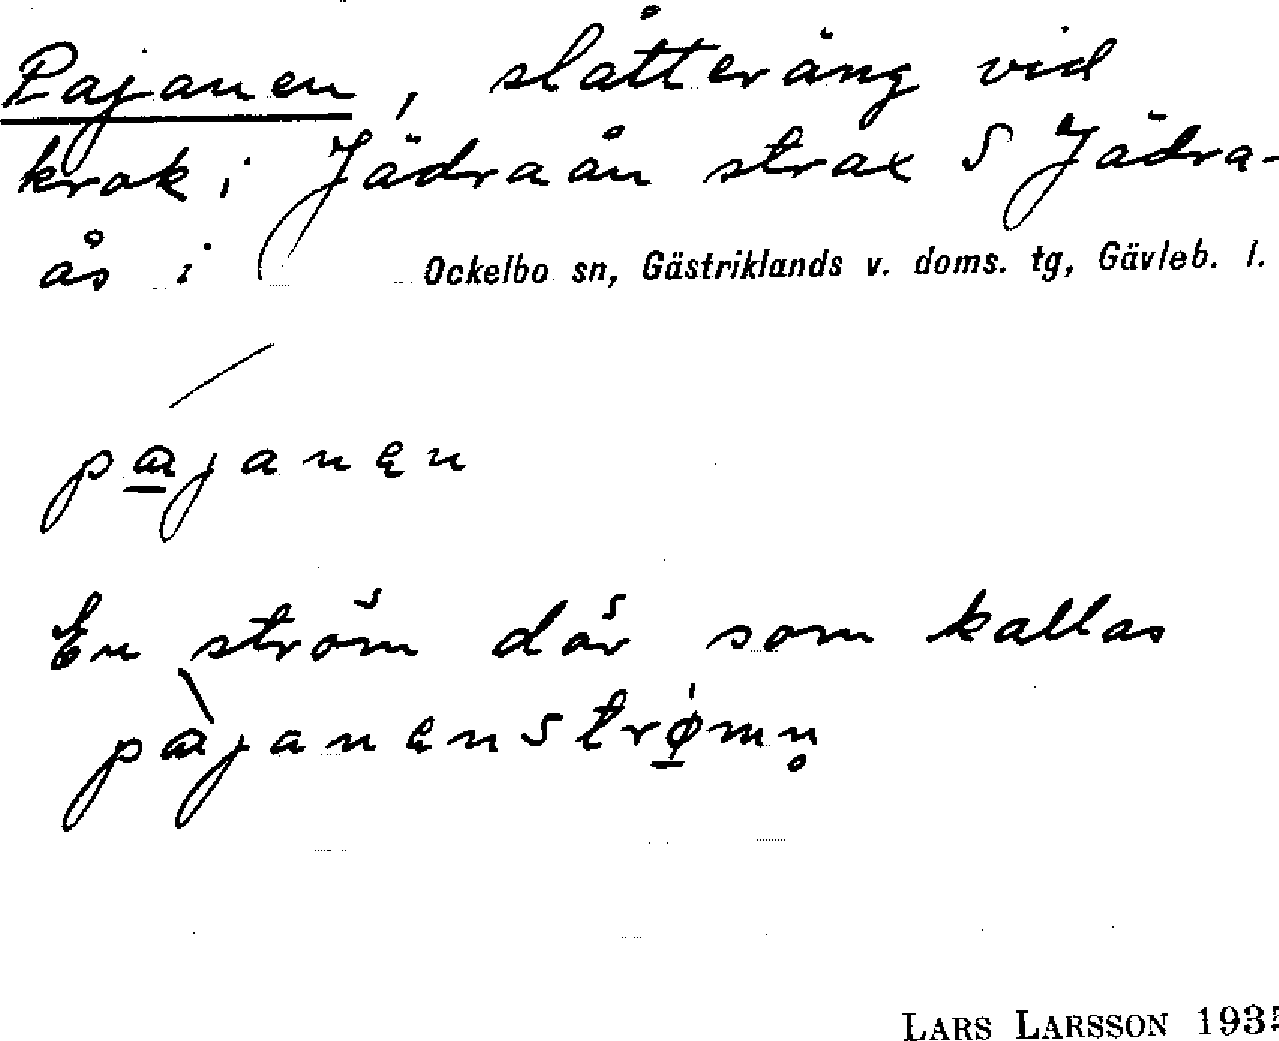 Pajanen, slåtteräng vid
krok i Jädraån strax S Jädra-
ås i Ockelbo sn, Gästriklands v. doms. tg, Gävleb. l.
pajanən
En ström där som kallas
pajanənstrømn̥
LARS LARSSON 1935